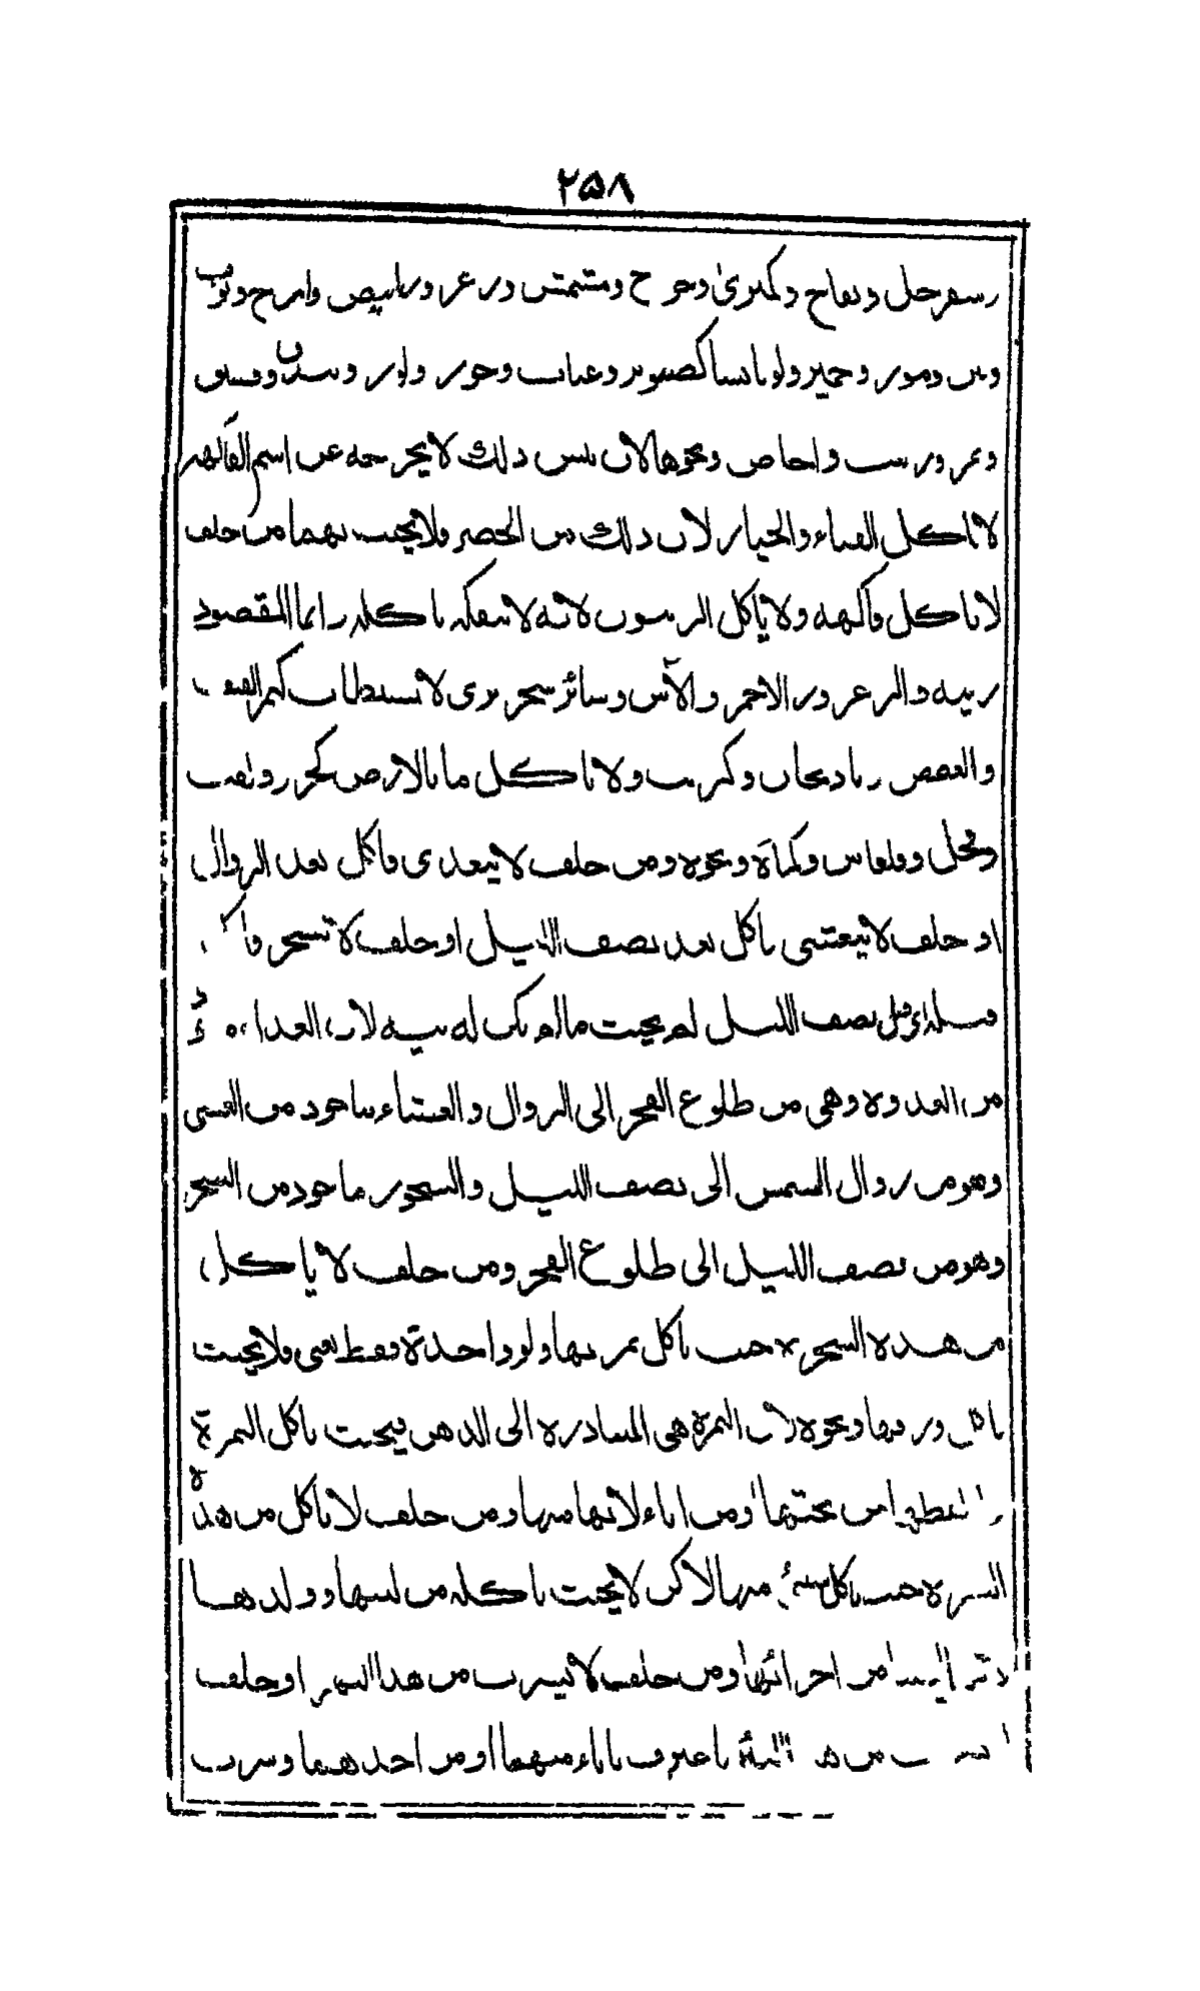 ٢٥٨
وسفرجل وتفاح وكمثرى وخوخ ومشمش وزعرور ابيض واترج وتوت
وتين وموز وجميز ولو يابسا كصنوبر وعناب وجوز ولوز وبندق وفستق
وتمر وزبيب واجاص ونحوها لان يبس ذلك لا يخرجه عن اسم الفاكهة
لا باكل القثاء والخيار لان ذلك من الخضر ولا يحنث بهما من حلف
لا ياكل فاكهة ولا ياكل الزيتون لانه لا يتفكه باكله وانما المقصود
زيته والزعرور الاحمر والآس وسائر شجر بري لا يستطاب كثمر القيقب
والعفص وباذنجان وكرنب ولا باكل ما بالارض كجزر ولفت
وفجل وقلقاس وكمأة ونحوه ومن حلف لا يتغدى فاكل بعد الزوال
او حلف لا يتعشى باكل بعد نصف الليل او حلف لا تسحر فاكل
قبله اى قبل نصف الليل لم يحنث ما لم يكن له نية لان الغداء
من الغدوة وهي من طلوع الفجر الى الزوال والعشاء ماخوذ من العشي
وهو من زوال الشمس الى نصف الليل والسحور ماخوذ من السحر
وهو من نصف الليل الى طلوع الفجر ومن حلف لا ياكل
من هذه الشجرة حنث باكل ثمرتها ولو واحدة فقط يعني ولا يحنث
باكل ورقها ونحوه لان الثمرة هي المتبادرة الى الذهن فيحنث باكل الثمرة
من تحتها او من اناء لانها منها ومن حلف لا ياكل من هذه
البقرة حنث باكل شيء منها لاكن لا يحنث باكله من لبنها وولدها
من اجزائها ومن حلف لا يشرب من هذا النهر او حلف
من هذه البئر باغترف باناء منهما او من احدهما وشرب